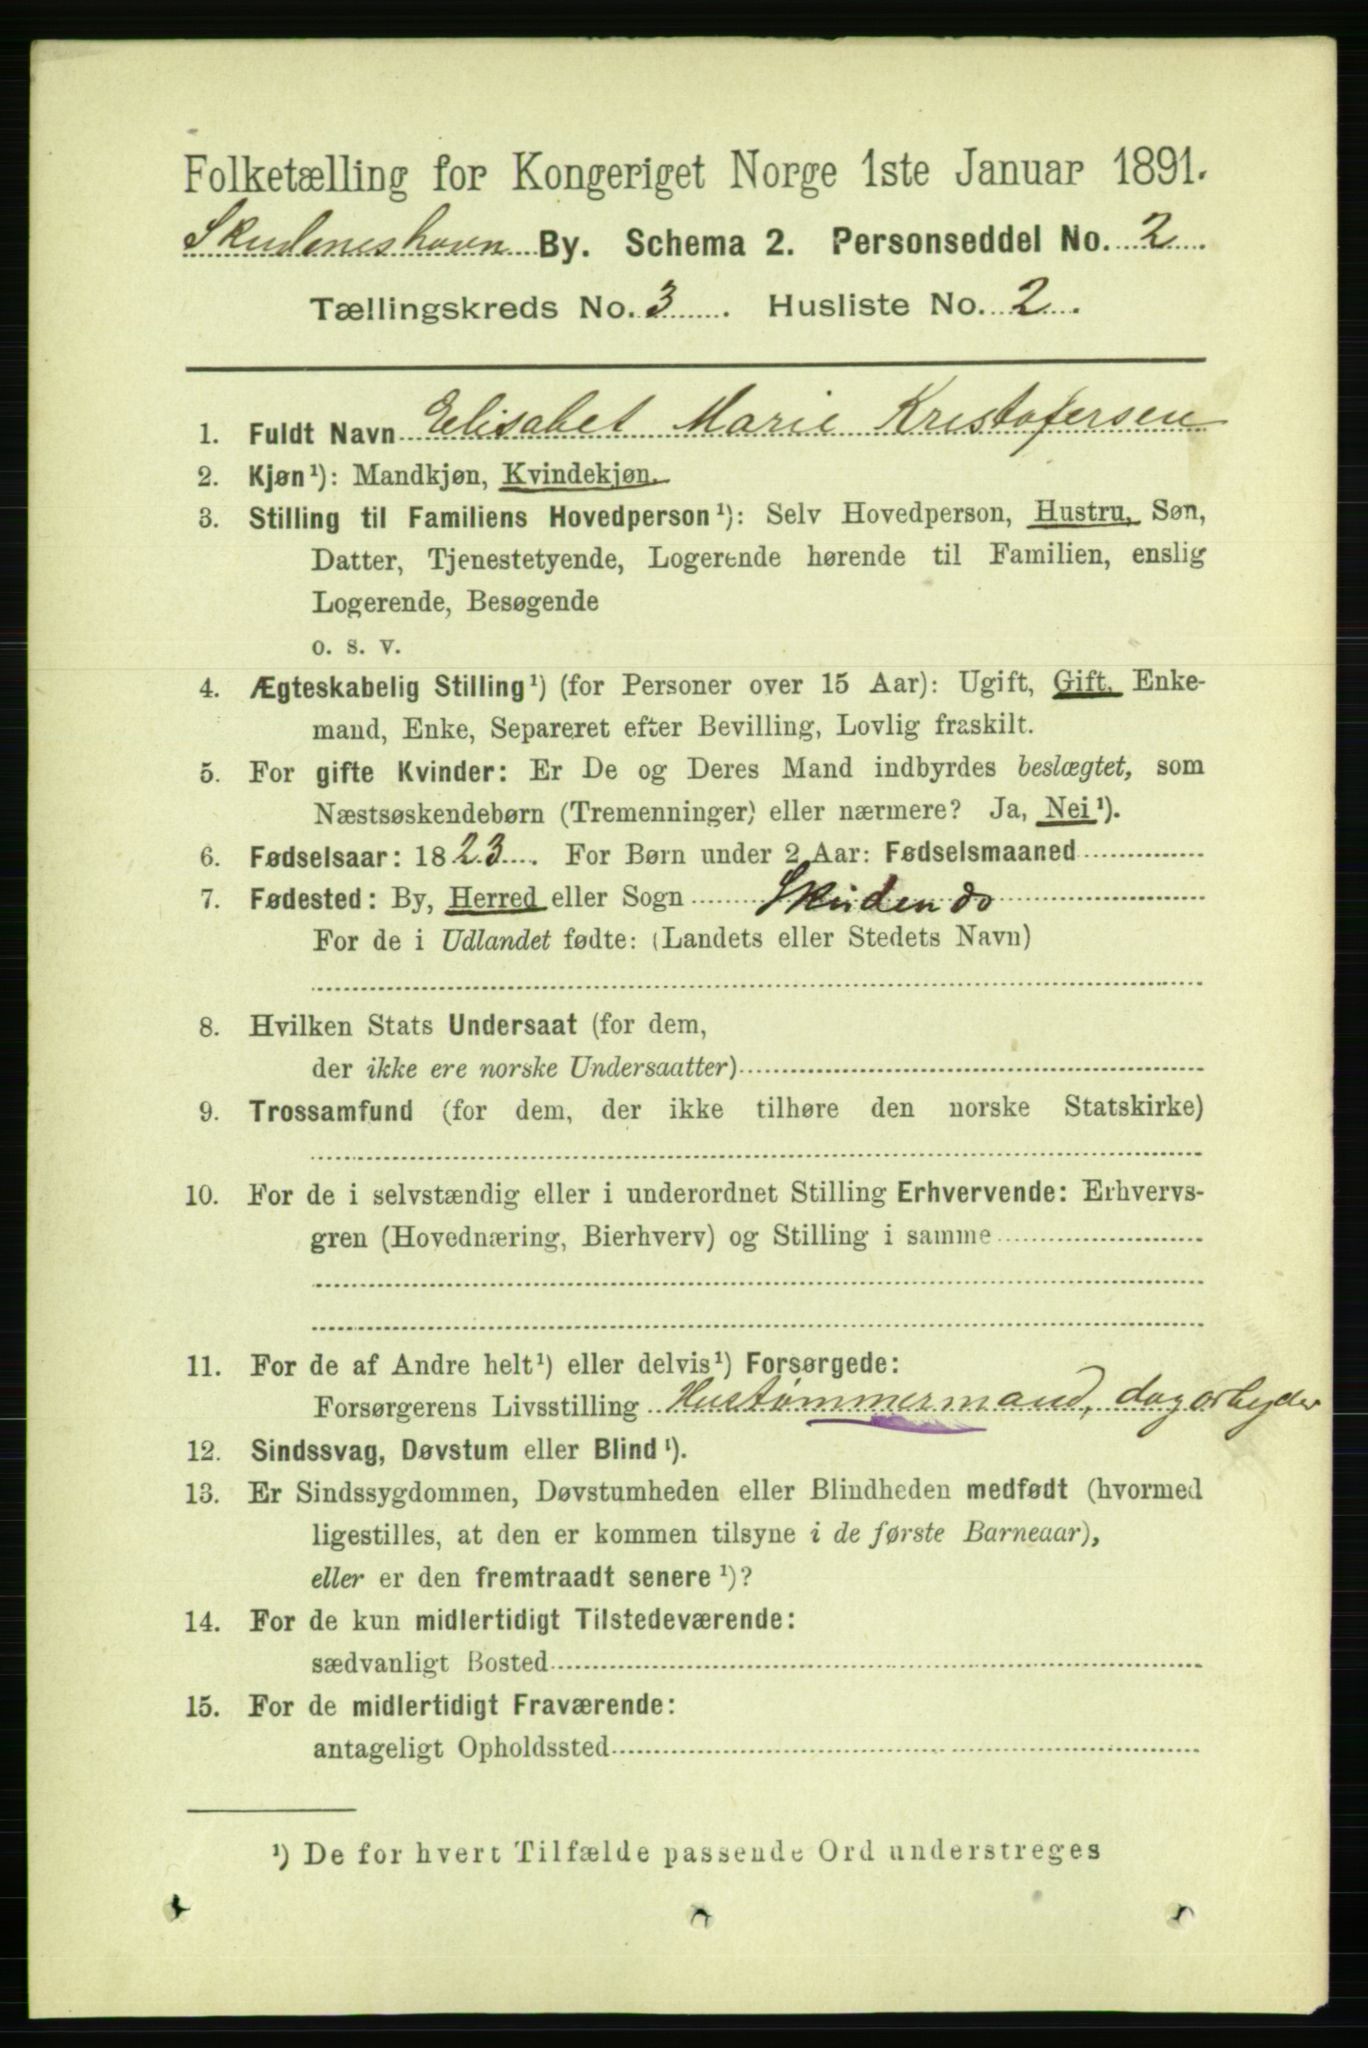 Folketælling for Kongeriget Norge 1ste Januar 1891.
Skudeneshavn By. Schema 2. Personseddel No. 2.
Tællingskreds No. 3. Husliste No. 2.
1. Fuldt Navn Elisabet Marie Kristofersen
2. Kjøn¹): Mandkjøn, Kvindekjøn.
3. Stilling til Familiens Hovedperson¹): Selv Hovedperson, Hustru, Søn,
Datter, Tjenestetyende, Logerende hørende til Familien, enslig
Logerende, Besøgende
o. s. v.
4. Ægteskabelig Stilling¹) (for Personer over 15 Aar): Ugift, Gift, Enke-
mand, Enke, Separeret efter Bevilling, Lovlig fraskilt.
5. For gifte Kvinder: Er De og Deres Mand indbyrdes beslægtet, som
Næstsøskendebørn (Tremenninger) eller nærmere? Ja, Nei¹).
6. Fødselsaar: 1823. For Børn under 2 Aar: Fødselsmaaned
7. Fødested: By, Herred eller Sogn Skuden do
For de i Udlandet fødte: (Landets eller Stedets Navn)
8. Hvilken Stats Undersaat (for dem,
der ikke ere norske Undersaatter)
9. Trossamfund (for dem, der ikke tilhøre den norske Statskirke)
10. For de i selvstændig eller i underordnet Stilling Erhvervende: Erhvervs-
gren (Hovednæring, Bierhverv) og Stilling i samme
11. For de af Andre helt¹) eller delvis¹) Forsørgede:
Forsørgerens Livsstilling Hustømmermand, dagarbyder
12. Sindssvag, Døvstum eller Blind¹).
13. Er Sindssygdommen, Døvstumheden eller Blindheden medfødt (hvormed
ligestilles, at den er kommen tilsyne i de første Barneaar),
eller er den fremtraadt senere¹)?
14. For de kun midlertidigt Tilstedeværende:
sædvanligt Bosted
15. For de midlertidigt Fraværende:
antageligt Opholdssted
¹) De for hvert Tilfælde passende Ord understreges